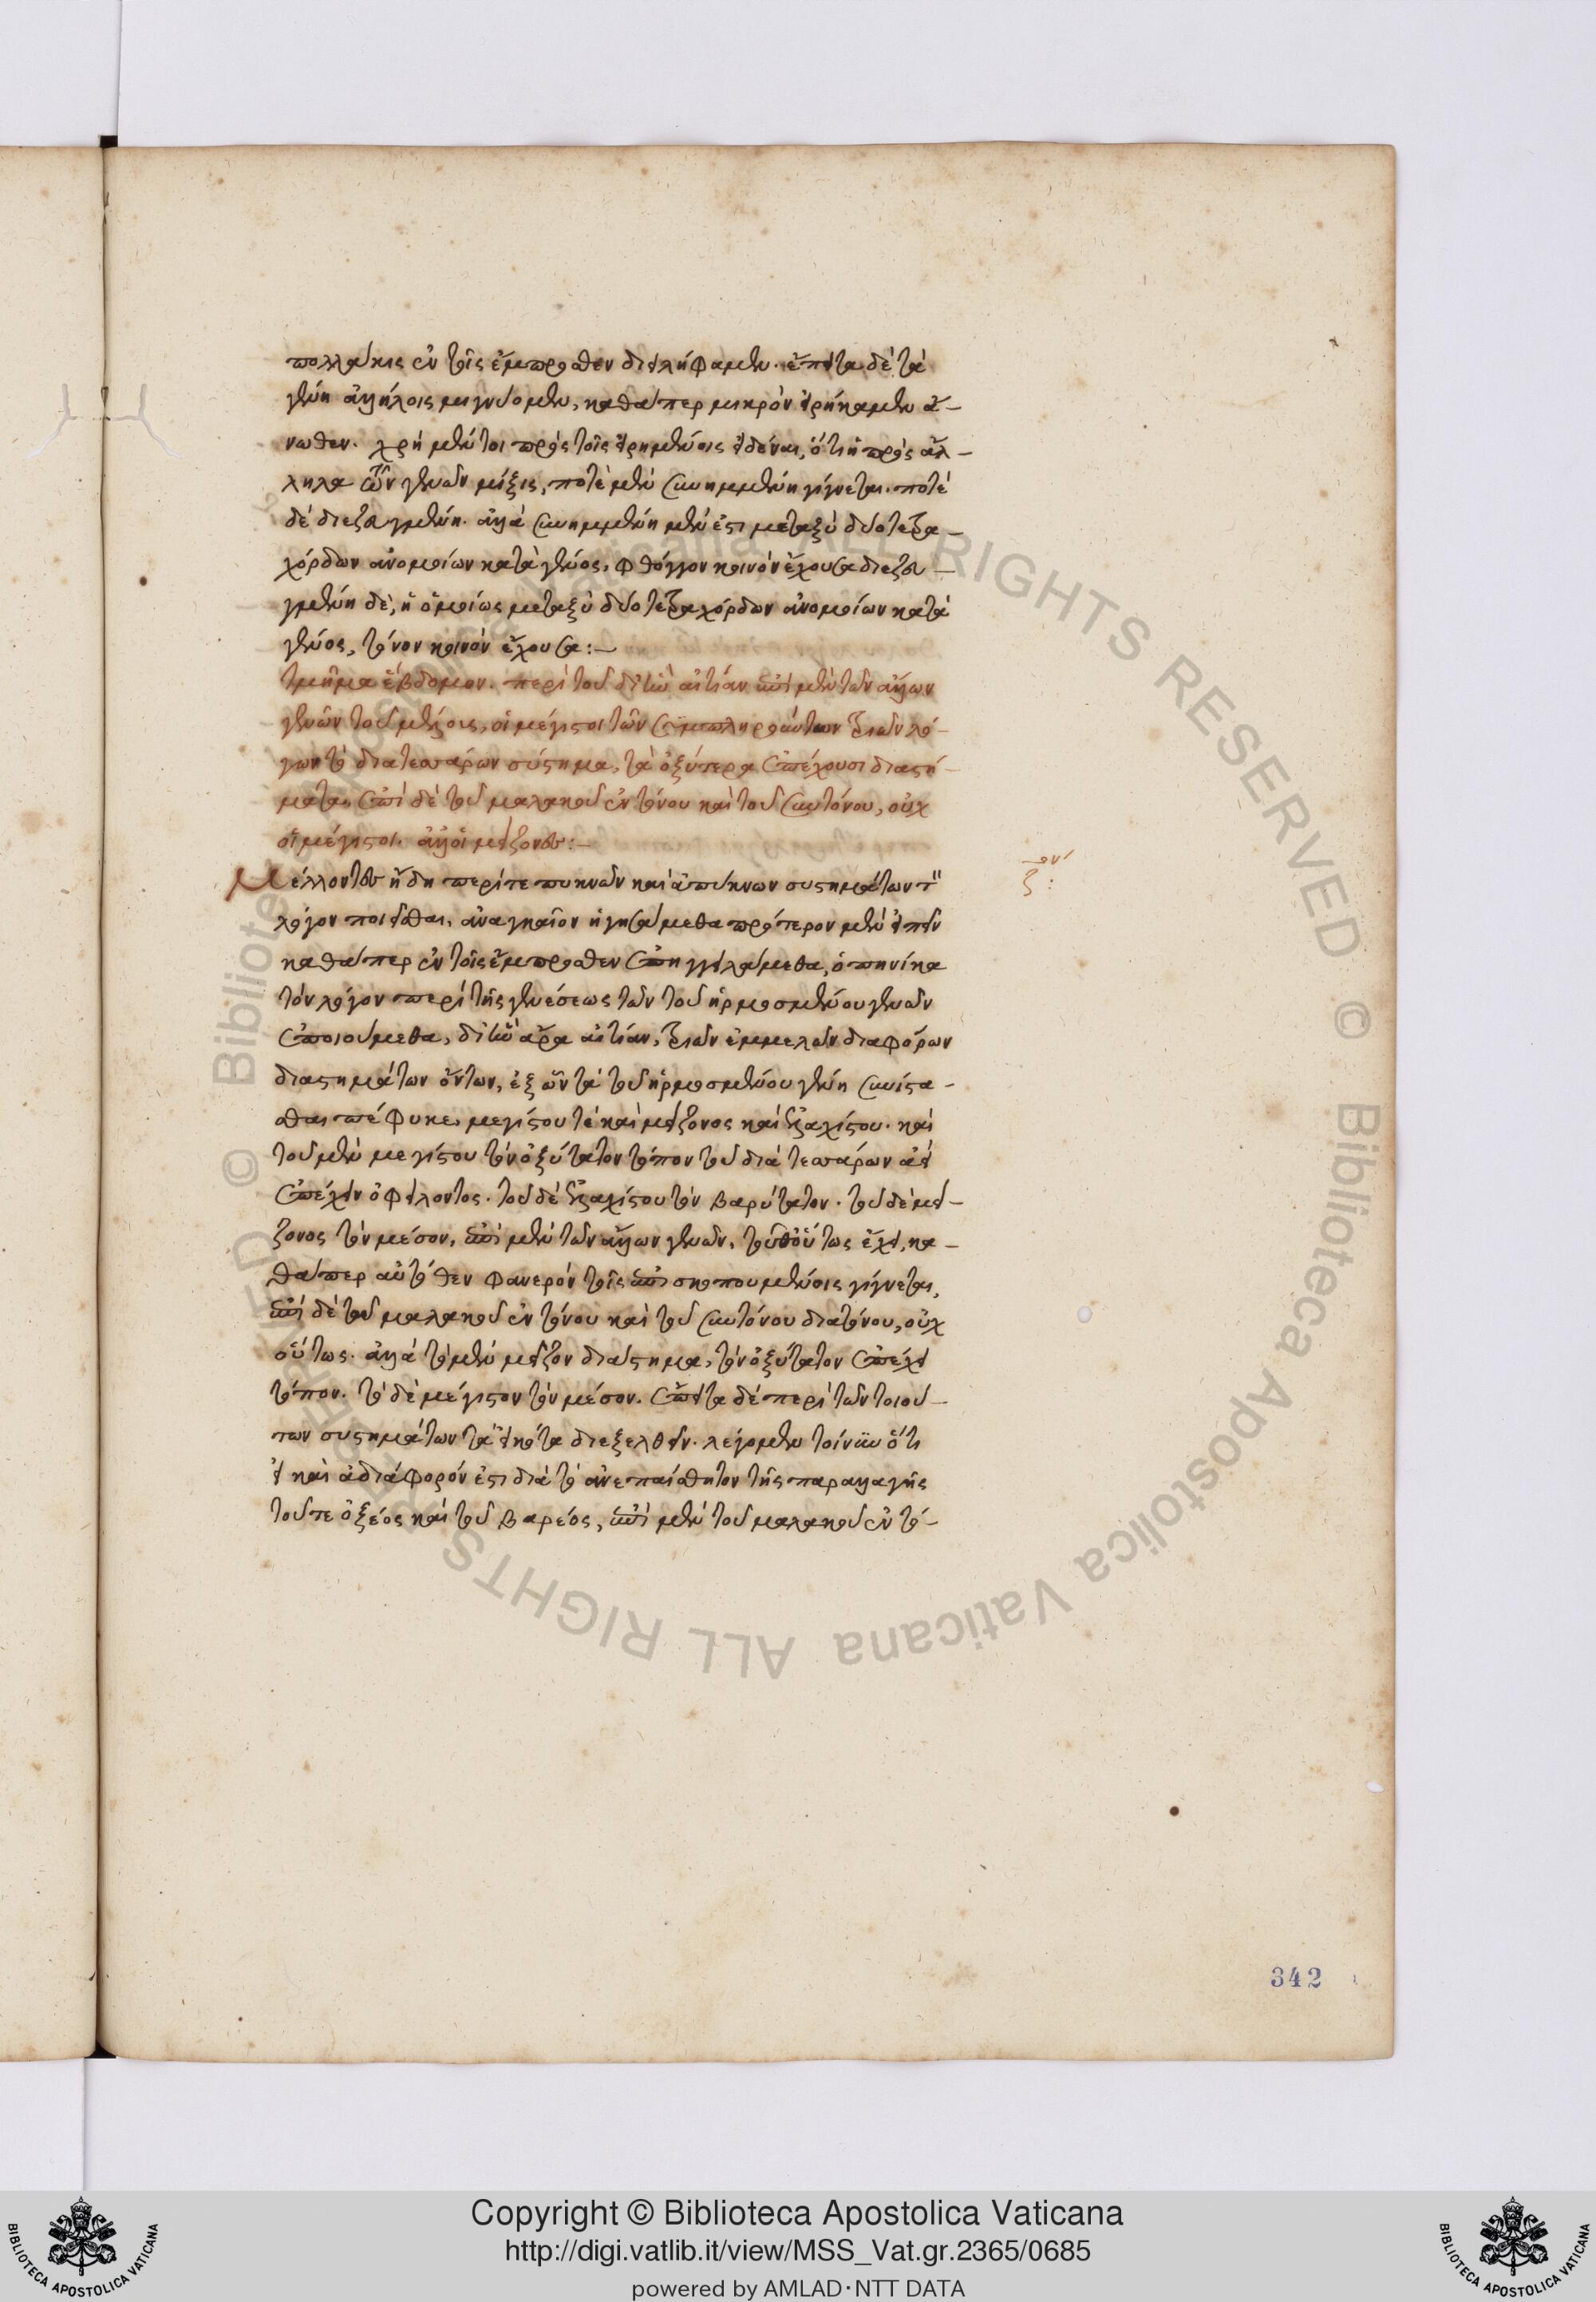 πολλάκις ἐν τοῖς ἔμπροσθεν διειλήφαμεν. ἔπειτα δὲ τὰ
γένη ἀλλήλοις μιγνύομεν, καθάπερ μικρὸν εἰρήκαμεν ἄ-
νωθεν. χρὴ μέντοι πρὸς τοῖς εἰρημένοις εἰδέναι, ὅτι ἡ πρὸς ἄλ-
ληλα τῶν γενῶν μίξις, ποτὲ μὲν συνημμένη γίγνεται. ποτὲ
δὲ διεζευγμένη. ἀλλὰ συνημμένη μέν ἐστι μεταξὺ δύο τετρα-
χόρδων ἀνομοίων κατὰ γένος, φθόγγον κοινὸν ἔχουσα διεζευ-
γμένη δὲ, ἡ ὁμοίως μεταξὺ δύο τετραχόρδων ἀνομοίων κατὰ
γένος, τόνον κοινὸν ἔχουσα:-
τμῆμα ἕβδομον. περὶ τοῦ δι' ἣν αἰτίαν ἐπὶ μὲν τῶν ἄλλων
γενῶν τοῦ μέλους, οἱ μέγιστοι τῶν συμπληρούντων τριῶν λό-
γων τὸ διατεσσάρων σύστημα, τὰ ὀξύτερα ἐπέχουσι διαστή-
ματα, ἐπὶ δὲ τοῦ μαλακοῦ ἐντόνου καὶ τοῦ συντόνου, οὐχ
οἱ μέγιστοι. ἀλλ' οἱ μείζονες:-
Μέλλοντες ἤδη περί τε πυκνῶν καὶ ἀπύκνων συστημάτων τὸν
λόγον ποιεῖσθαι, ἀναγκαῖον ἡγησάμεθα πρότερον μὲν εἰπεῖν
καθάπερ ἐν τοῖς ἔμπροσθεν ἐπηγγειλάμεθα, ὁπηνίκα
τὸν λόγον περὶ τῆς γενέσεως τῶν τοῦ ἡρμοσμένου γενῶν
ἐποιούμεθα, δι' ἣν ἄρα αἰτίαν, τριῶν ἐμμελῶν διαφόρων
διαστημάτων ὄντων, ἐξ ὧν τὰ τοῦ ἡρμοσμένου γένη συνίστα-
σθαι πέφυκε, μεγίστου τὲ καὶ μείζονος καὶ ἐλαχίστου. καὶ
τοῦ μὲν μεγίστου τὸν ὀξύτατον τόπον τοῦ διὰ τεσσάρων ἀεὶ
ἐπέχειν ὀφείλοντος. τοῦ δὲ ἐλαχίστου τὸν βαρύτατον. τοῦ δὲ μεί-
ζονος τὸν μέσον, ἐπὶ μὲν τῶν ἄλλων γενῶν, τοῦθ' οὕτως ἔχει, κα-
θάπερ αὐτόθεν φανερὸν τοῖς ἐπισκοπουμένοις γίγνεται,
ἐπὶ δὲ τοῦ μαλακοῦ ἐντόνου καὶ τοῦ συντόνου διατόνου, οὐχ
οὕτως. ἀλλὰ τὸ μὲν μεῖζον διάστημα, τὸν ὀξύτατον ἐπέχει
τόπον. τὸ δὲ μέγιστον τὸν μέσον. ἔπειτα δὲ περὶ τῶν τοιού-
των συστημάτων τὰ εἰκότα διεξελθεῖν. λέγομεν τοίνυν ὅτι
εἰ καὶ ἀδιάφορόν ἐστι διὰ τὸ ἀνεπαίσθητον τῆς παραλλαγῆς
τοῦ τε ὀξέος καὶ τοῦ βαρέος, ἐπὶ μὲν τοῦ μαλακοῦ ἐντό-
ζ:
342
Copyright © Biblioteca Apostolica Vaticana
http://digi.vatlib.it/view/MSS_Vat.gr.2365/0685
powered by AMLAD·NTT DATA
BIBLIOTECA APOSTOLICA VATICANA
BIBLIOTECA APOSTOLICA VATICANA
© Biblioteca Apostolica Vaticana ALL RIGHTS RESERVED © Biblioteca Apostolica Vaticana ALL RIGHTS RESERVED